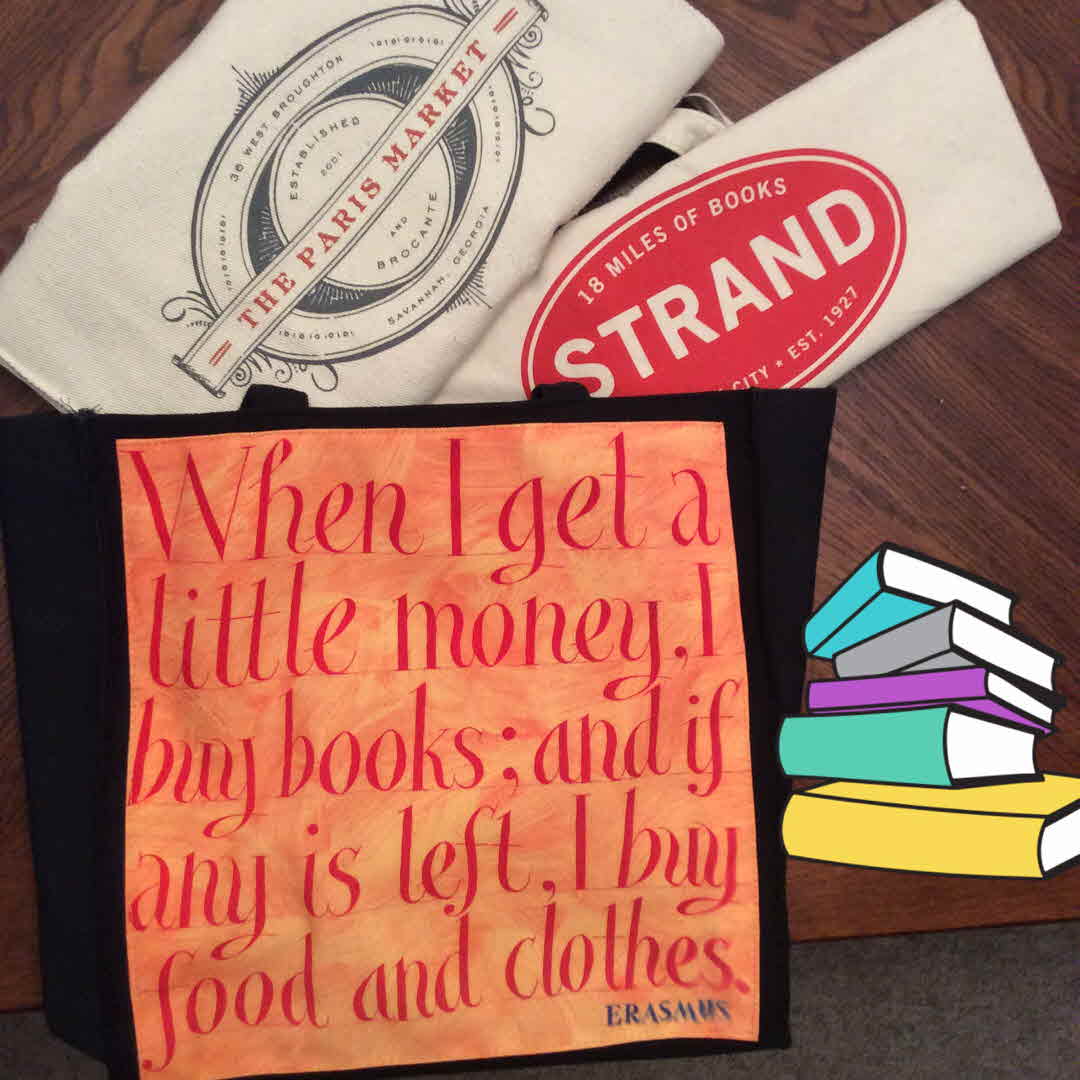 36 WEST BROUGHTON
ESTABLISHED
2001
THE PARIS MARKET
AND
BROCANTE
SAVANNAH, GEORGIA
18 MILES OF BOOKS
STRAND
CITY * EST. 1927
When I get a
little money, I
buy books; and if
any is left, I buy
food and clothes.
ERASMUS